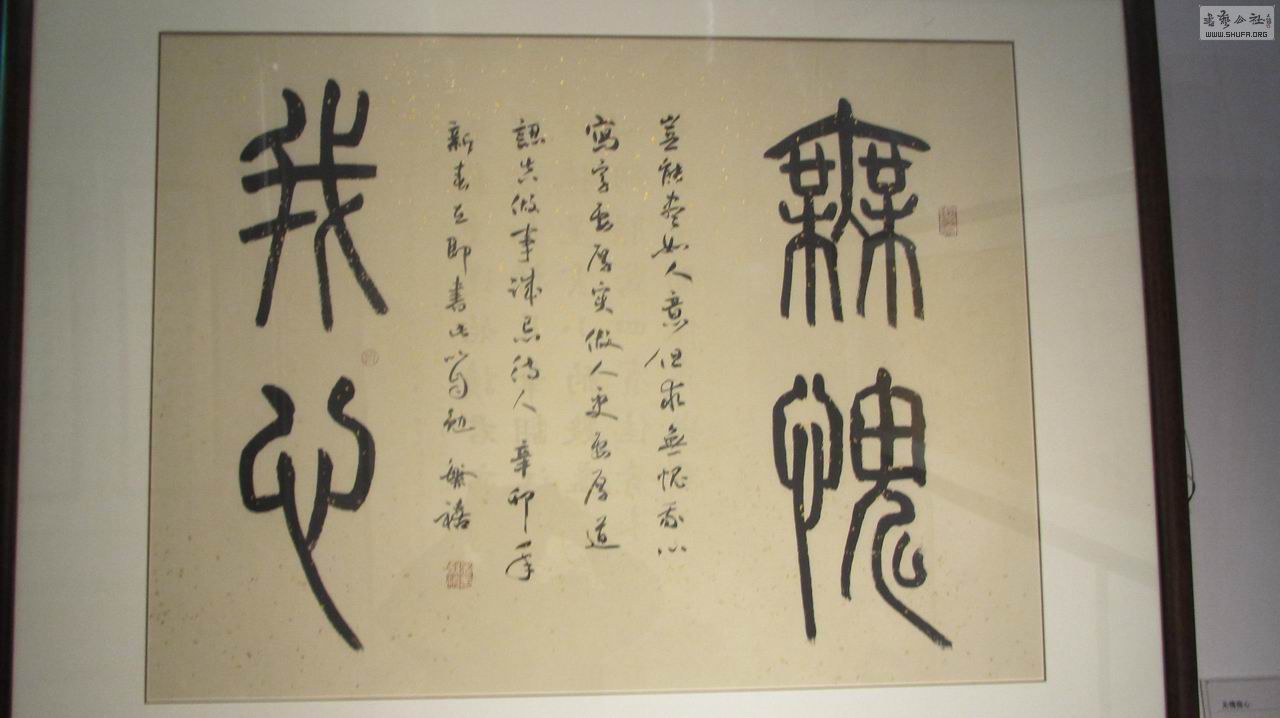 無愧
豈能盡如人意但求無愧我心
寫字要厚實做人更要厚道
認真做事誠懇待人辛卯年
新春立即書此以自勉
我心
书艺公社
WWW.SHUFA.ORG
无愧我心